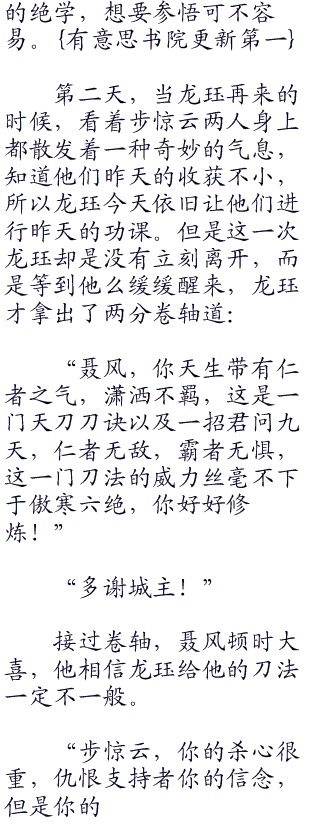 的绝学，想要参悟可不容
易。{有意思书院更新第一}
第二天，当龙珏再来的
时候，看着步惊云两人身上
都散发着一种奇妙的气息，
知道他们昨天的收获不小，
所以龙珏今天依旧让他们进
行昨天的功课。但是这一次
龙珏却是没有立刻离开，而
是等到他么缓缓醒来，龙珏
才拿出了两分卷轴道：
“聂风，你天生带有仁
者之气，潇洒不羁，这是一
门天刀刀诀以及一招君问九
天，仁者无敌，霸者无惧，
这一门刀法的威力丝毫不下
于傲寒六绝，你好好修
炼！”
“多谢城主！”
接过卷轴，聂风顿时大
喜，他相信龙珏给他的刀法
一定不一般。
“步惊云，你的杀心很
重，仇恨支持者你的信念，
但是你的